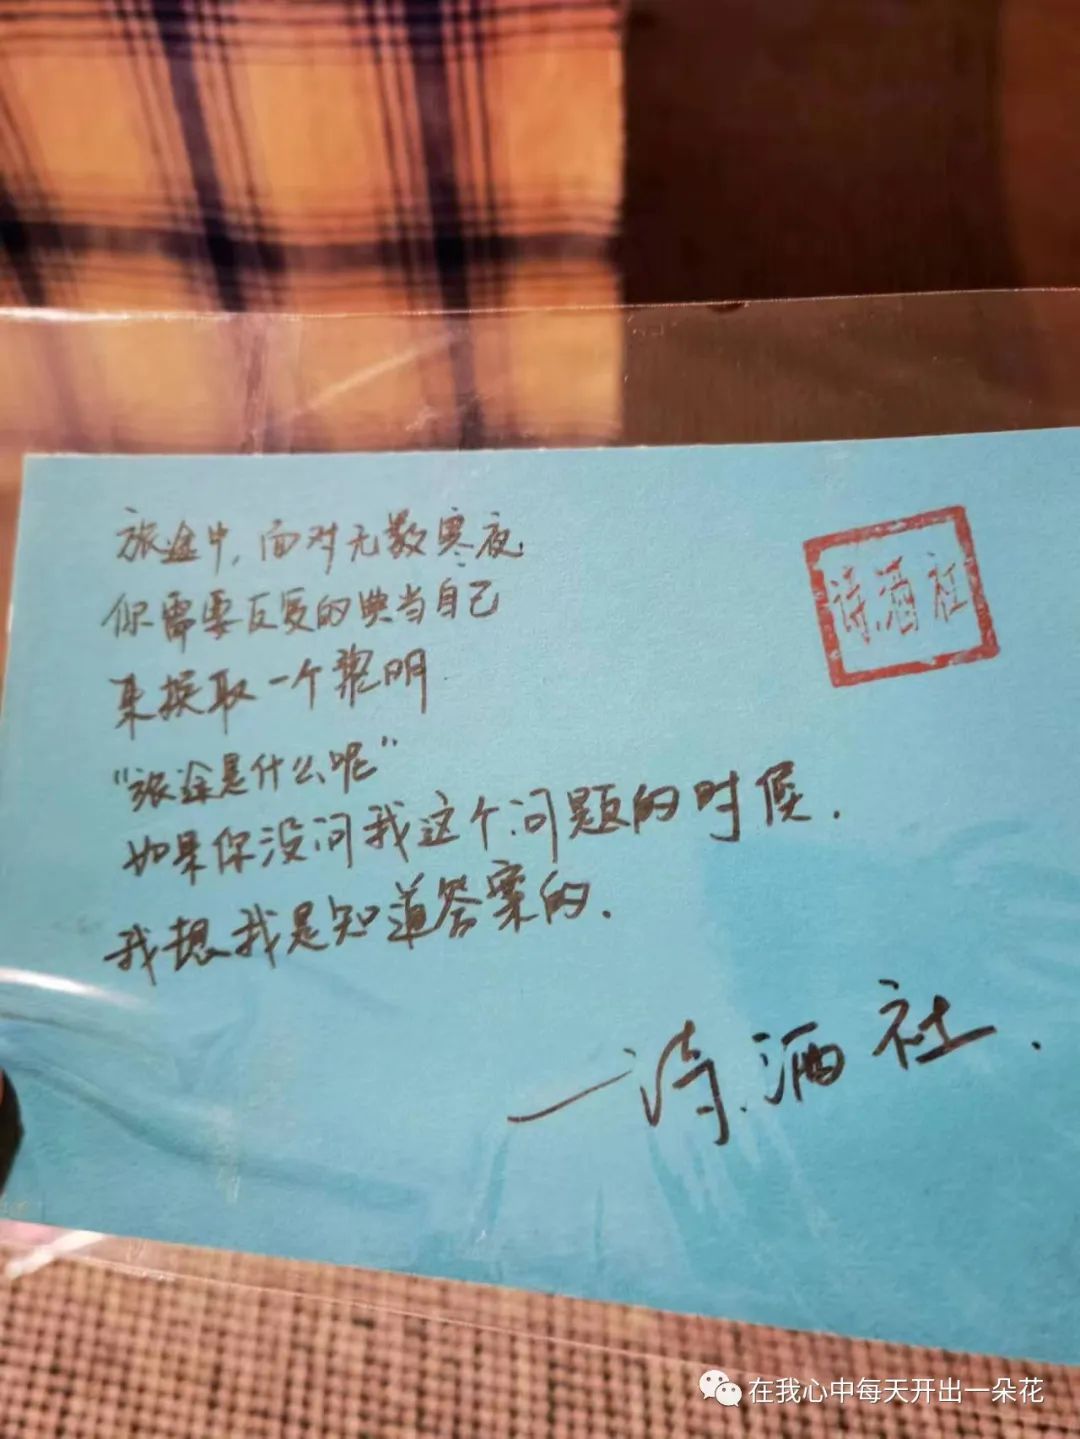 旅途中，面对无数寒夜
你需要反复的典当自己
来换取一个黎明
“旅途是什么呢”
如果你没问我这个问题的时候．
我想我是知道答案的．
诗．酒社
一诗．酒社．
在我心中每天开出一朵花